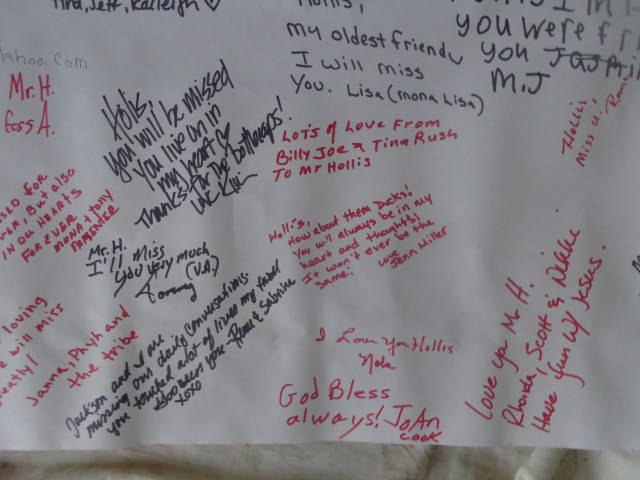 Tina, Jeff, Kaileigh
Yahoo.com
Mr. H.
Hollis,
my oldest friend
I will miss
you. Lisa (mona Lisa)
you were
you
M.J
Hollis,
Miss u.
Holis,
you will be missed
you live on in
my heart
Thanks for the buttercups!
Lots of Love From
Billy Joe & Tina Rush
To Mr Hollis
FOR
but also
in our hearts
forever
Mona & Tony
Mr. H.
I'll miss
you very much
Tommy (V.A.)
Hollis,
How about them Ducks!
You will always be in my
heart and thoughts!
It won't ever be the
same!
Love
Jenn Hiller
loving
will miss
greatly!
Janna, Phyh and
the tribe
Jackson and I are
missing our daily conversations.
you touched a lot of lives my father
would have been you - Rena & Sabrina
xoxo
I Love You Hollis
Nola
God Bless
always! JoAn
Cook
Love ya Mr. H.
Rhonda, Scott & Nikki
Have fun w/ Jesus.